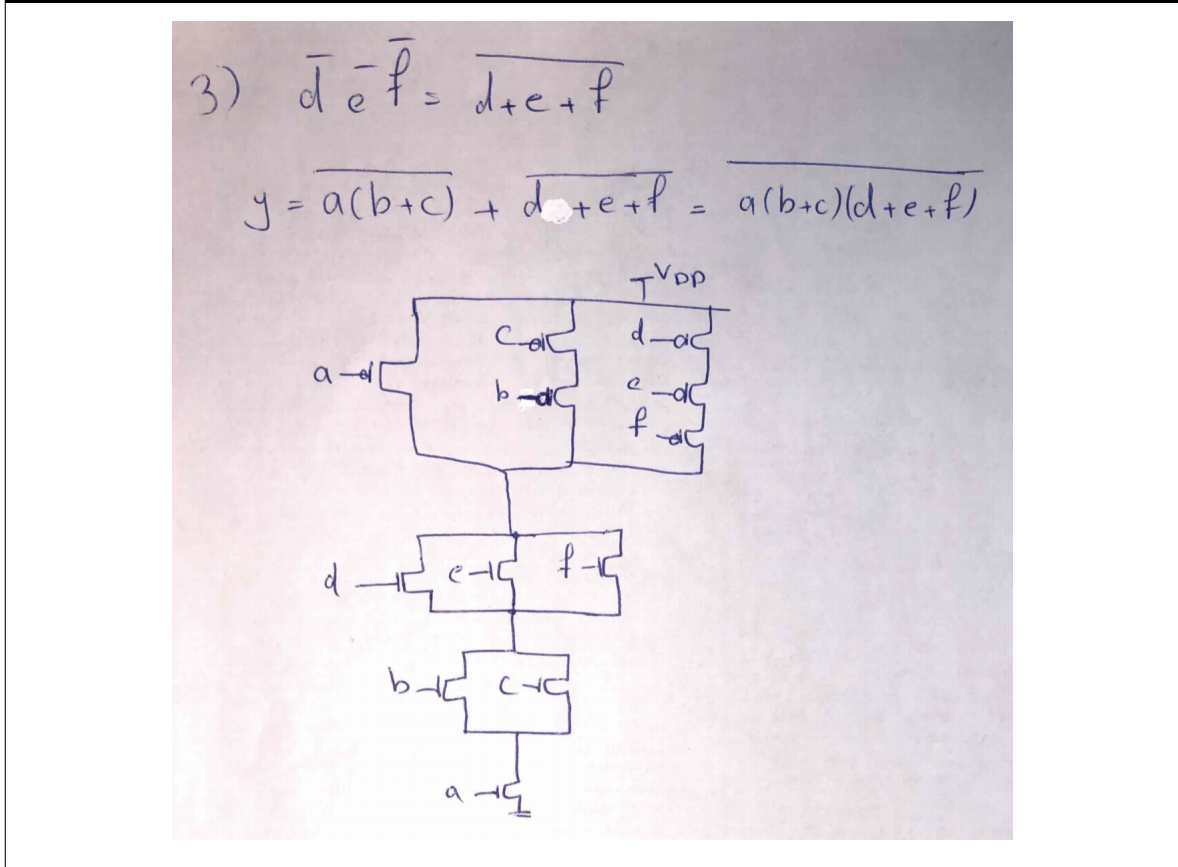 3) d̅ e̅ f̅ = \overline{d+e+f}
y = \overline{a(b+c)} + \overline{d +e+f} = \overline{a(b+c)(d+e+f)}
VDD
c d
a b e
f
d e f
b c
a